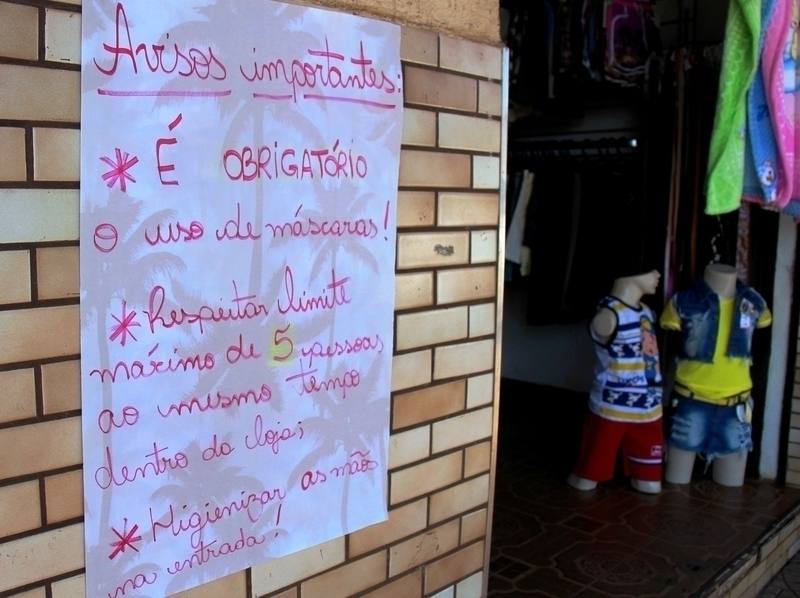 Avisos importantes:
* É OBRIGATÓRIO
o uso de máscaras!
* Respeitar limite
máximo de 5 pessoas
ao mesmo tempo
dentro da loja;
* Higienizar as mãos
na entrada!